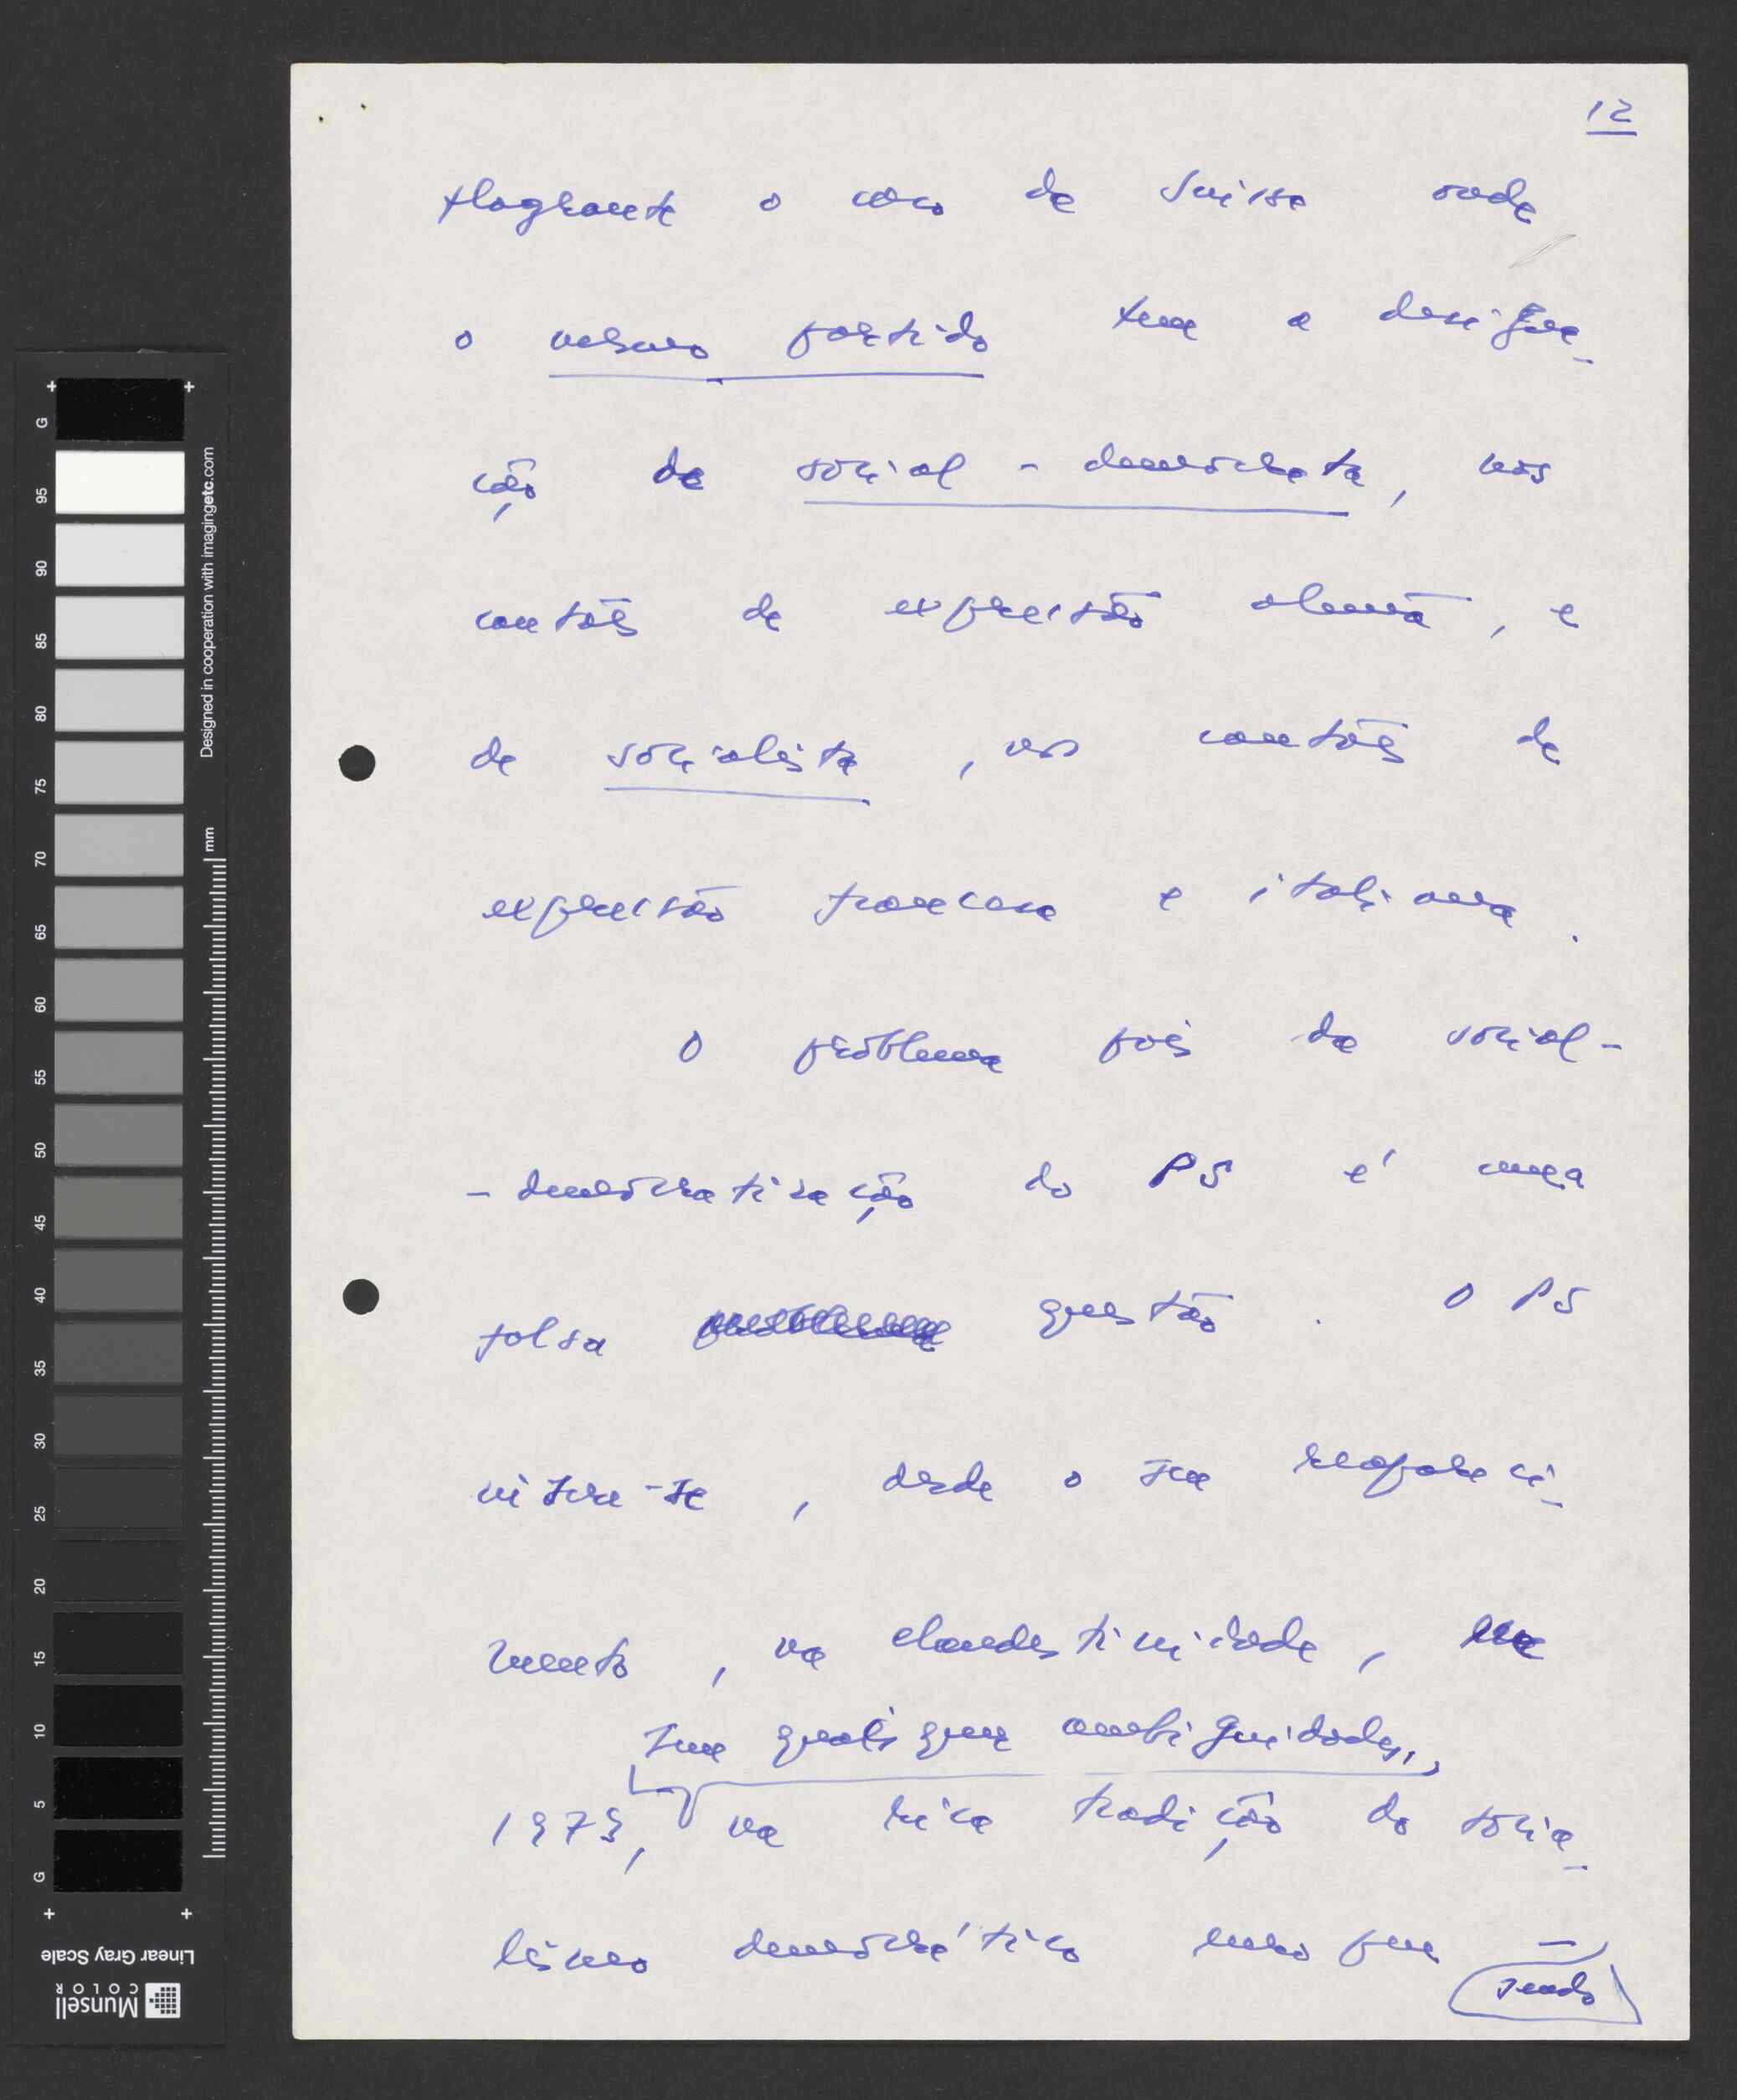 12
flagrante o caso da Suissa onde
o mesmo partido tem a designa-
ção de social-democrata, nos
cantões de expressão alemã, e
de socialista, nos cantões de
expressão francesa e italiana.
O problema pois da social-
-democratização do PS é uma
falsa questão. O PS
situa-se, desde o seu reapareci-
mento, na clandestinidade, em
sem quaisquer ambiguidades,
1973, na rica tradição do socia-
lismo democrático europeu –
sendo
G
95
90
85
80
75
70
65
60
55
50
45
40
35
30
25
20
15
10
5
G
Designed in cooperation with imagingetc.com
mm
Linear Gray Scale
Munsell
COLOR